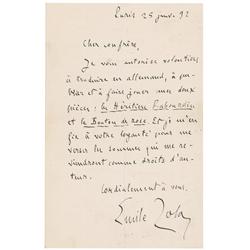 Paris 25 janv. 92
Cher confrère,
Je vous autorise volontiers
à traduire en allemand, à pu-
blier et à faire jouer mes deux
pièces: les Héritiers Rabourdin
et le Bouton de rose. Et je m'en
fie à votre loyauté pour me
verser les sommes qui me re-
viendront comme droits d'au-
teur.
Cordialement à vous.
Emile Zola